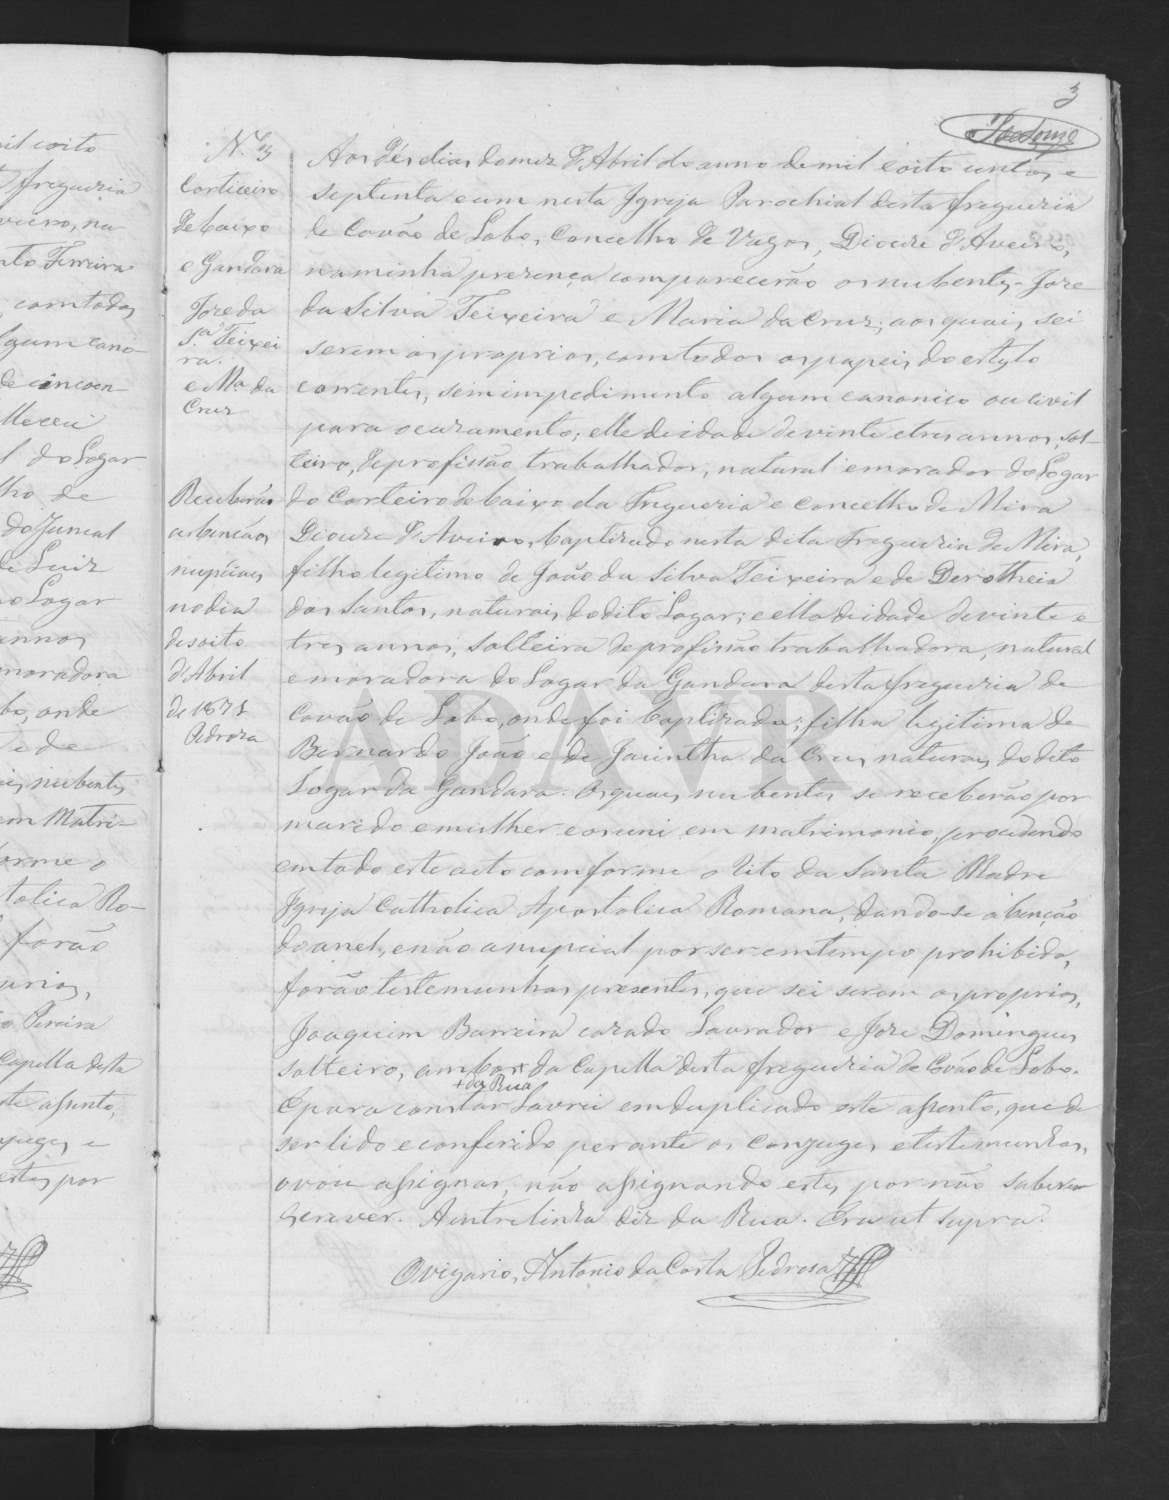 3
N.º 3
Corticeiro
de baixo
e Gandara
Joze da
S.ª Teixei
ra.
e M.ª da
Cruz
Receberão
as bencãos
nupciaes
no dia
desoito
d'Abril
de 1871
Pedroza
Aos dés dias do mez d'Abril do anno de mil e oito centos, e
septenta e um nesta Igreja Parochial desta freguezia
de Covão de Lobo, Concelho de Vagos, Diocese d'Aveiro,
na minha prezença comparecerão os nubentes - Joze
da Silva Teixeira e Maria da Cruz; aos quais, sei
serem os proprios, com todos os papeis do estylo
correntes, sem impedimento algum canonico ou civil
para o cazamento; elle de idade de vinte e tres annos, sol-
teiro, de profissão trabalhador, natural e morador do Logar
do Corteiro de baixo da Freguezia e Concelho de Mira
Diocese d'Aveiro, baptizado nesta dita Freguezia de Mira,
filho legitimo de João da Silva Teixeira e de Derotheia
dos Santos, naturais do dito Logar; e ella de idade de vinte e
tres annos, solteira de profissão trabalhadora, natural
e moradora do Logar da Gandara desta freguezia de
Covão de Lobo, onde foi baptizada; filha legitima de
Bernardo João e de Jacintha da Cruz naturaes do dito
Logar da Gandara. Os quaes nubentes se receberão por
marido e mulher e os uni em matrimonio, procedendo
em todo este acto comforme o Rito da Santa Madre
Igreja Catholica Apostolica Romana, dando-se a benção
do anel, e não a nupcial por ser em tempo prohibido,
forão testemunhas prezentes, que sei serem os proprios,
Joaquim Barreira cazado Lavrador e Joze Domingues
solteiro, ambos + da Capella desta freguezia de Covão de Lobo.
+ da Rua
E para constar Lavrei em duplicado este assento, que de
ser lido e conferido perante os conjuges e testemunhas,
o vou assignar, não assignando estes por não saberem
escrever. A entrelinha diz da Rua. Era ut supra.
O vigario, Antonio da Costa Pedrosa
ADAVR